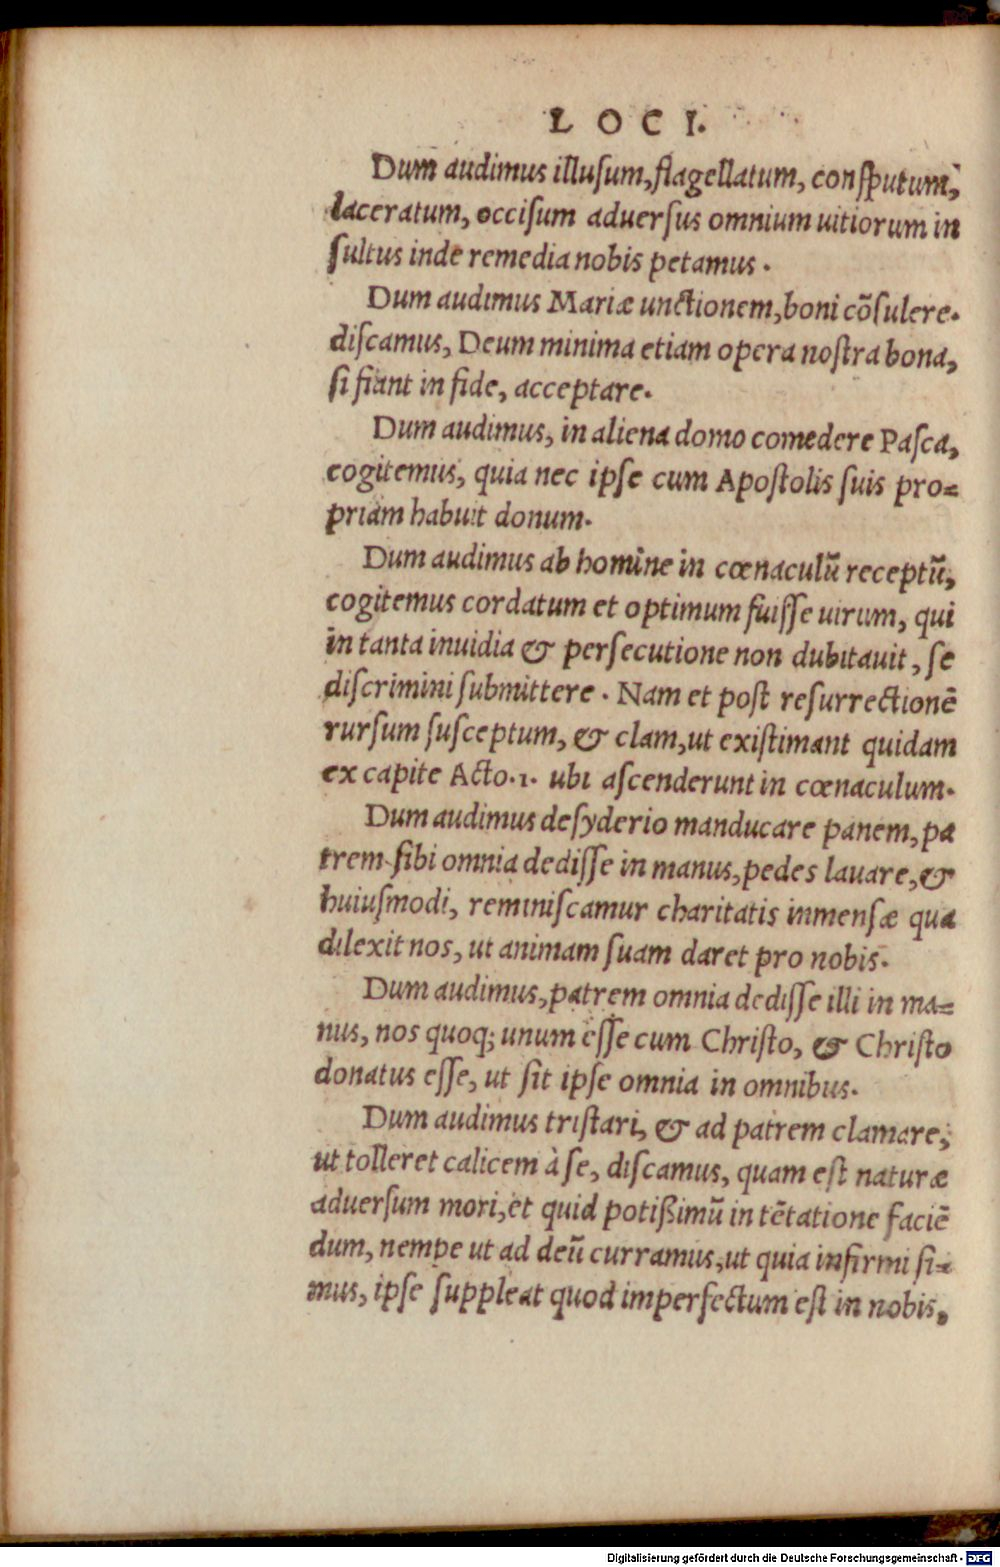 LOCI.
Dum audimus illusum, flagellatum, consputum,
laceratum, occisum aduersus omnium uitiorum in
sultus inde remedia nobis petamus.
Dum audimus Mariæ unctionem, boni cõsulere.
discamus, Deum minima etiam opera nostra bona,
si fiant in fide, acceptare.
Dum audimus, in aliena domo comedere Pasca,
cogitemus, quia nec ipse cum Apostolis suis pro=
priam habuit donum.
Dum audimus ab homine in cœnaculũ receptũ,
cogitemus cordatum et optimum fuisse uirum, qui
in tanta inuidia & persecutione non dubitauit, se
discrimini submittere. Nam et post resurrectionẽ
rursum susceptum, & clam, ut existimant quidam
ex capite Acto.1. ubi ascenderunt in cœnaculum.
Dum audimus desyderio manducare panem, pa
trem sibi omnia dedisse in manus, pedes lauare, &
huiusmodi, reminiscamur charitatis inmensæ qua
dilexit nos, ut animam suam daret pro nobis.
Dum audimus, patrem omnia dedisse illi in ma=
nus, nos quoq; unum esse cum Christo, & Christo
donatus esse, ut sit ipse omnia in omnibus.
Dum audimus tristari, & ad patrem clamare,
ut tolleret calicem à se, discamus, quam est naturæ
aduersum mori, et quid potißimũ in tẽtatione faciẽ
dum, nempe ut ad deũ curramus, ut quia infirmi si=
mus, ipse suppleat quod imperfectum est in nobis,
Digitalisierung gefördert durch die Deutsche Forschungsgemeinschaft - DFG